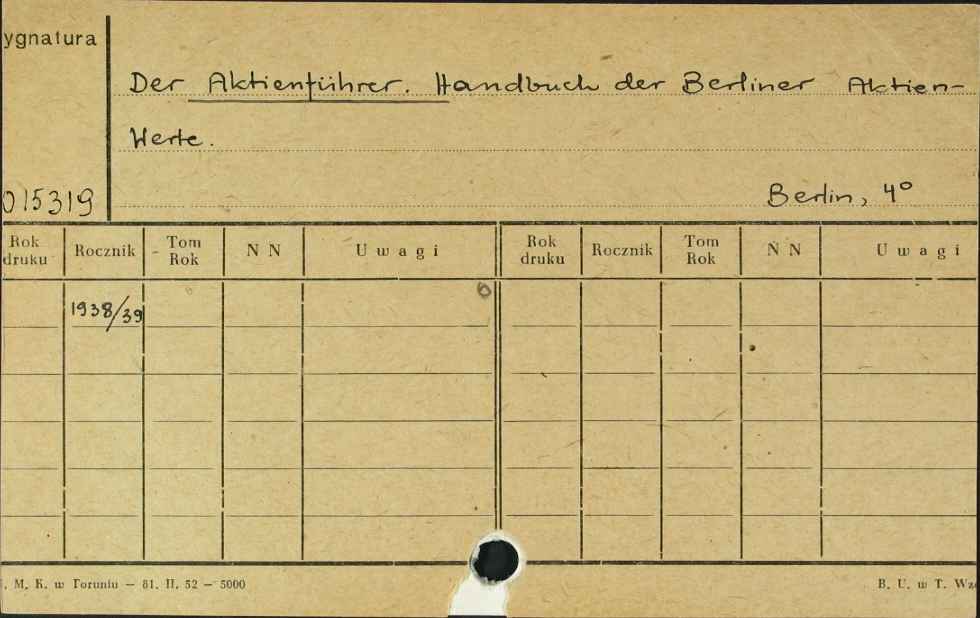 ygnatura
Der Aktienführer. Handbuch der Berliner Aktien-
Werte.
015319
Berlin, 4°
Rok druku Rocznik Tom Rok N N Uwagi Rok druku Rocznik Tom Rok N N Uwagi
1938/39
. M. K. w Toruniu — 81. II. 52 — 5000
B. U. w T. Wz